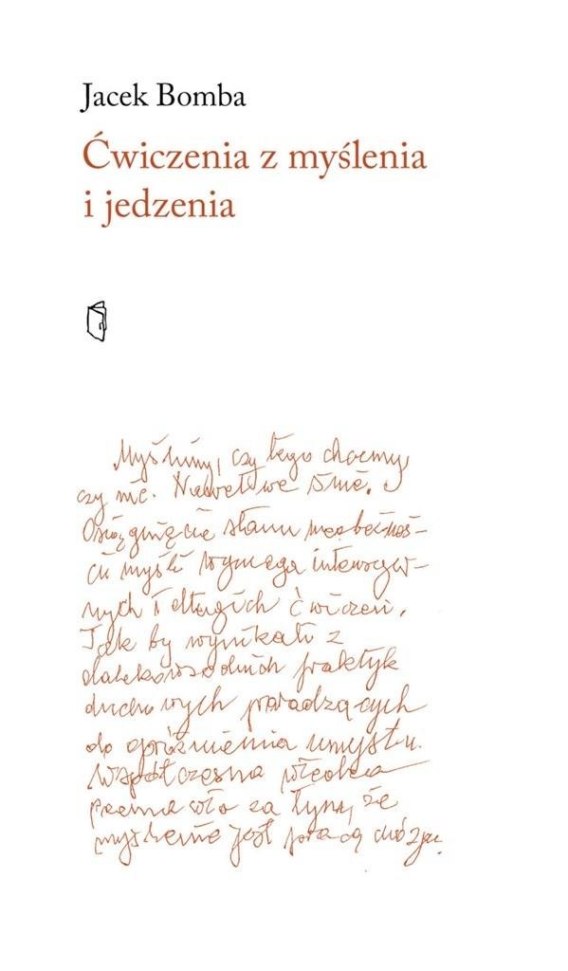 Jacek Bomba
Ćwiczenia z myślenia
i jedzenia
Myślimy, czy tego chcemy
czy nie. Nawet we śnie.
Osiągnięcie stanu nieobecnoś-
ci myśli wymaga intensyw-
nych i długich ćwiczeń.
Tak by wynikało z
dalekowschodnich praktyk
duchowych prowadzących
do opróżnienia umysłu.
Współczesna wiedza
przemawia za tym, że
myślenie jest pracą mózgu.